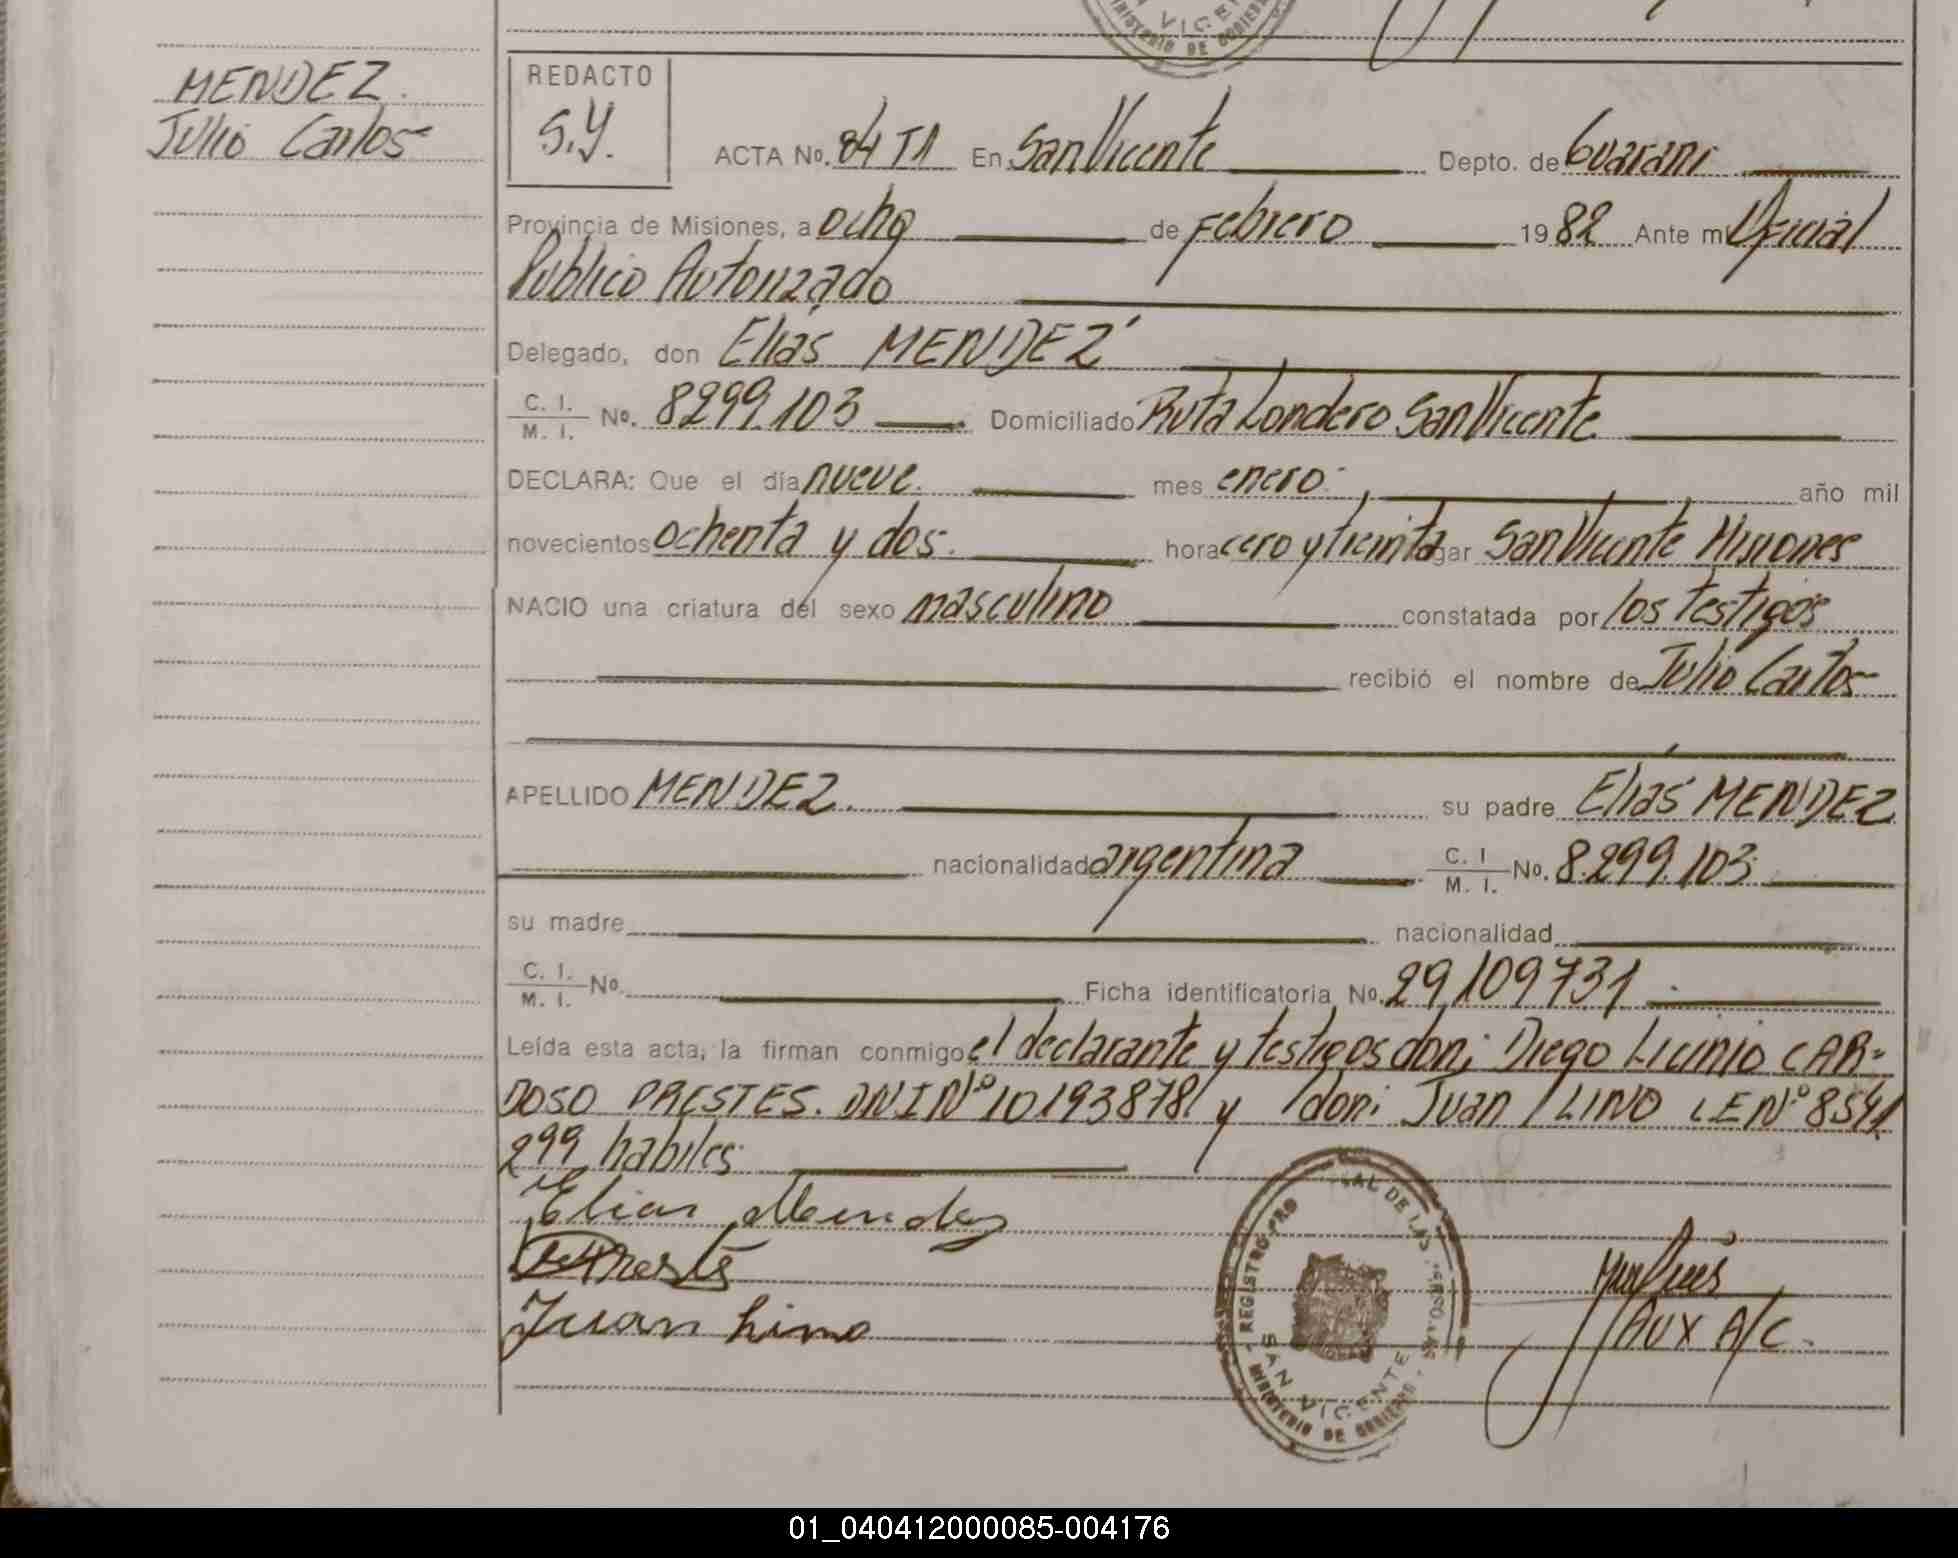 MENDEZ.
Julio Carlos
REDACTO
S.Y.
ACTA No. 84 T1 En San Vicente Depto. de Guarani
Provincia de Misiones, a ocho de Febrero 1982 Ante mi Oficial
Publico Autorizado
Delegado, don Elias MENDEZ
C. I. / M. I. No. 8299.103 Domiciliado Ruta Londero San Vicente
DECLARA: Que el día nueve. mes enero año mil
novecientos ochenta y dos. hora cero y treinta gar San Vicente Misiones
NACIO una criatura del sexo masculino constatada por los testigos
recibió el nombre de Julio Carlos
APELLIDO MENDEZ. su padre Elias MENDEZ
nacionalidad argentina C. I / M. I. No. 8.299.103
su madre nacionalidad
C. I. / M. I. No. Ficha identificatoria No. 29.109731
Leída esta acta, la firman conmigo el declarante y testigos don; Diego Licinio CAR-
DOSO PRESTES. DNI Nº 10193878 y don; Juan LINO LE Nº 8541
299 habiles
Elias Mendez
Juan Lino
AUX A/C.
REGISTRO PRO AL DE LAS PERSONAS
SAN VICENTE
MINISTERIO DE GOBIERNO
01_040412000085-004176